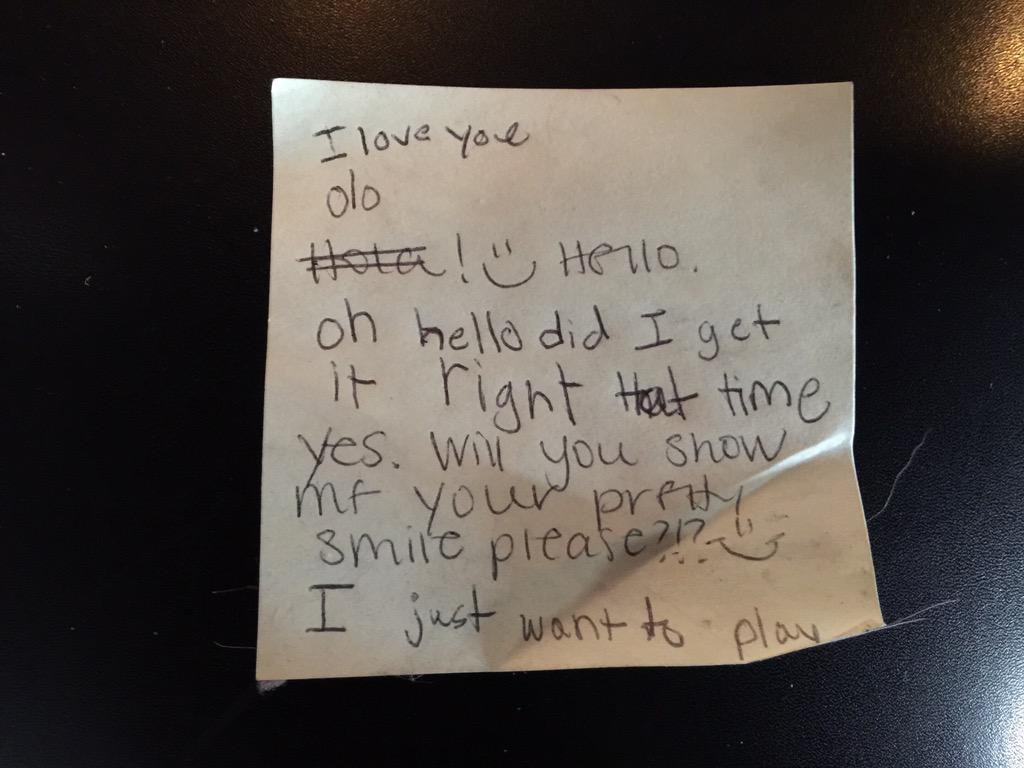 I love you
olo
Hola! Hello.
oh hello did I get
it right that time
yes. Will you show
me your pretty
smile please?!?
I just want to play